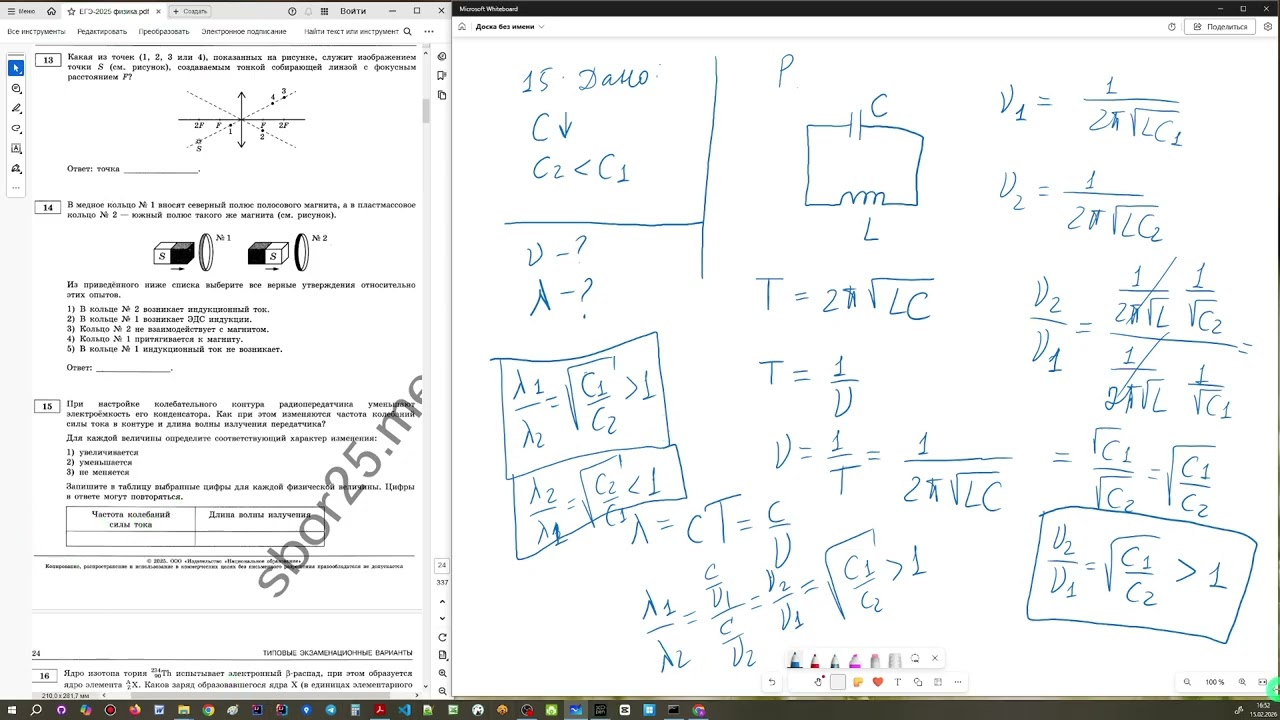 Меню
ЕГЭ-2025 физика.pdf
Создать
Войти
Все инструменты Редактировать Преобразовать Электронное подписание Найти текст или инструмент
13 Какая из точек (1, 2, 3 или 4), показанных на рисунке, служит изображением
точки S (см. рисунок), создаваемым тонкой собирающей линзой с фокусным
расстоянием F?
4 3
2F F 1 F 2F
2
S
Ответ: точка ______________.
14 В медное кольцо № 1 вносят северный полюс полосового магнита, а в пластмассовое
кольцо № 2 — южный полюс такого же магнита (см. рисунок).
S № 1 S № 2
Из приведённого ниже списка выберите все верные утверждения относительно
этих опытов.
1) В кольце № 2 возникает индукционный ток.
2) В кольце № 1 возникает ЭДС индукции.
3) Кольцо № 2 не взаимодействует с магнитом.
4) Кольцо № 1 притягивается к магниту.
5) В кольце № 1 индукционный ток не возникает.
Ответ: ______________.
15 При настройке колебательного контура радиопередатчика уменьшают
электроёмкость его конденсатора. Как при этом изменяются частота колебаний
силы тока в контуре и длина волны излучения передатчика?
Для каждой величины определите соответствующий характер изменения:
1) увеличивается
2) уменьшается
3) не меняется
Запишите в таблицу выбранные цифры для каждой физической величины. Цифры
в ответе могут повторяться.
Частота колебаний силы тока Длина волны излучения
© 2025. ООО «Издательство «Национальное образование»
Копирование, распространение и использование в коммерческих целях без письменного разрешения правообладателя не допускается
sbor25.me
24 ТИПОВЫЕ ЭКЗАМЕНАЦИОННЫЕ ВАРИАНТЫ
16 Ядро изотопа тория ²³⁴₉₀Th испытывает электронный β-распад, при этом образуется
ядро элемента ᴬ_ZX. Каков заряд образовавшегося ядра X (в единицах элементарного
210,0 x 281,7 мм
24
337
Microsoft Whiteboard
Доска без имени
Поделиться
15. Дано:
C↓
C₂ < C₁
ν - ?
λ - ?
λ₁/λ₂ = √(C₁/C₂) > 1
λ₂/λ₁ = √(C₂/C₁) < 1
P.
C
L
T = 2π√LC
T = 1/ν
ν = 1/T = 1/(2π√LC)
λ = cT = c/ν
λ₁/λ₂ = (c/ν₁)/(c/ν₂) = ν₂/ν₁ = √(C₁/C₂) > 1
ν₁ = 1/(2π√LC₁)
ν₂ = 1/(2π√LC₂)
ν₂/ν₁ = (1/(2π√L) 1/√C₂)/(1/(2π√L) 1/√C₁) =
= √C₁/√C₂ = √(C₁/C₂)
ν₂/ν₁ = √(C₁/C₂) > 1
100 %
16:52
15.02.2026